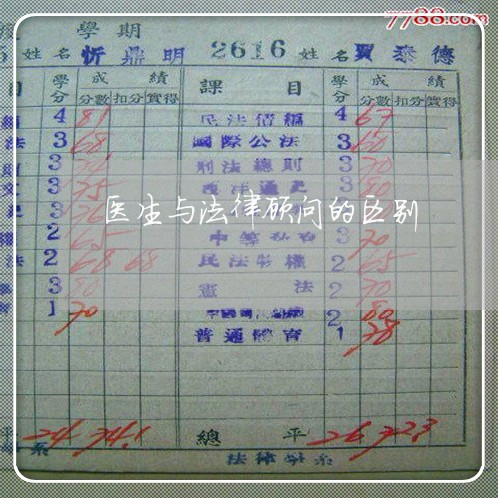 7788.com
學期
姓名 忻鼎明 2616 姓名 賈泰德
目 學分 成績 課目 學分 成績
分數 扣分 實得 分數 扣分 實得
4 81 民法債編 4 67
法 3 68 國際公法 3 60
3 刑法總則 3 70
3 75 3 80
医生与法律顾问的区别
2 65 3 70
法 2 68 68 民法物權 2 65
3 80 憲法 2 70
1 70 2 80
普通體育 1 78
平 24 74.1 總平 26 72.3
系 法律學系